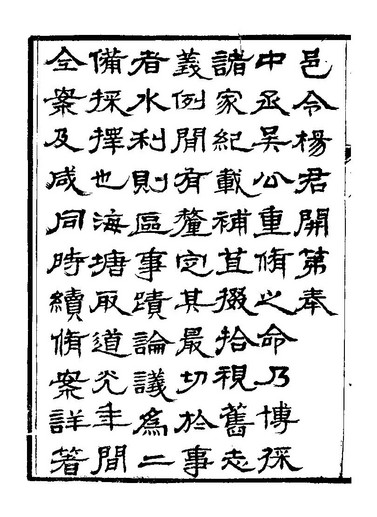 邑令楊君開第奉
中丞吳公重脩之命乃博採
諸家紀載補苴掇拾視舊志
義例閒有釐定其最切於事
者水利則區事蹟論議爲二
備採擇也海塘取道光年間
全案及咸同時續脩案詳著